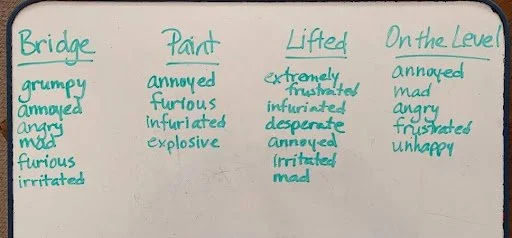 Bridge
grumpy
annoyed
angry
mad
furious
irritated
Paint
annoyed
furious
infuriated
explosive
Lifted
extremely
frustrated
infuriated
desperate
annoyed
irritated
mad
On the Level
annoyed
mad
angry
frustrated
unhappy